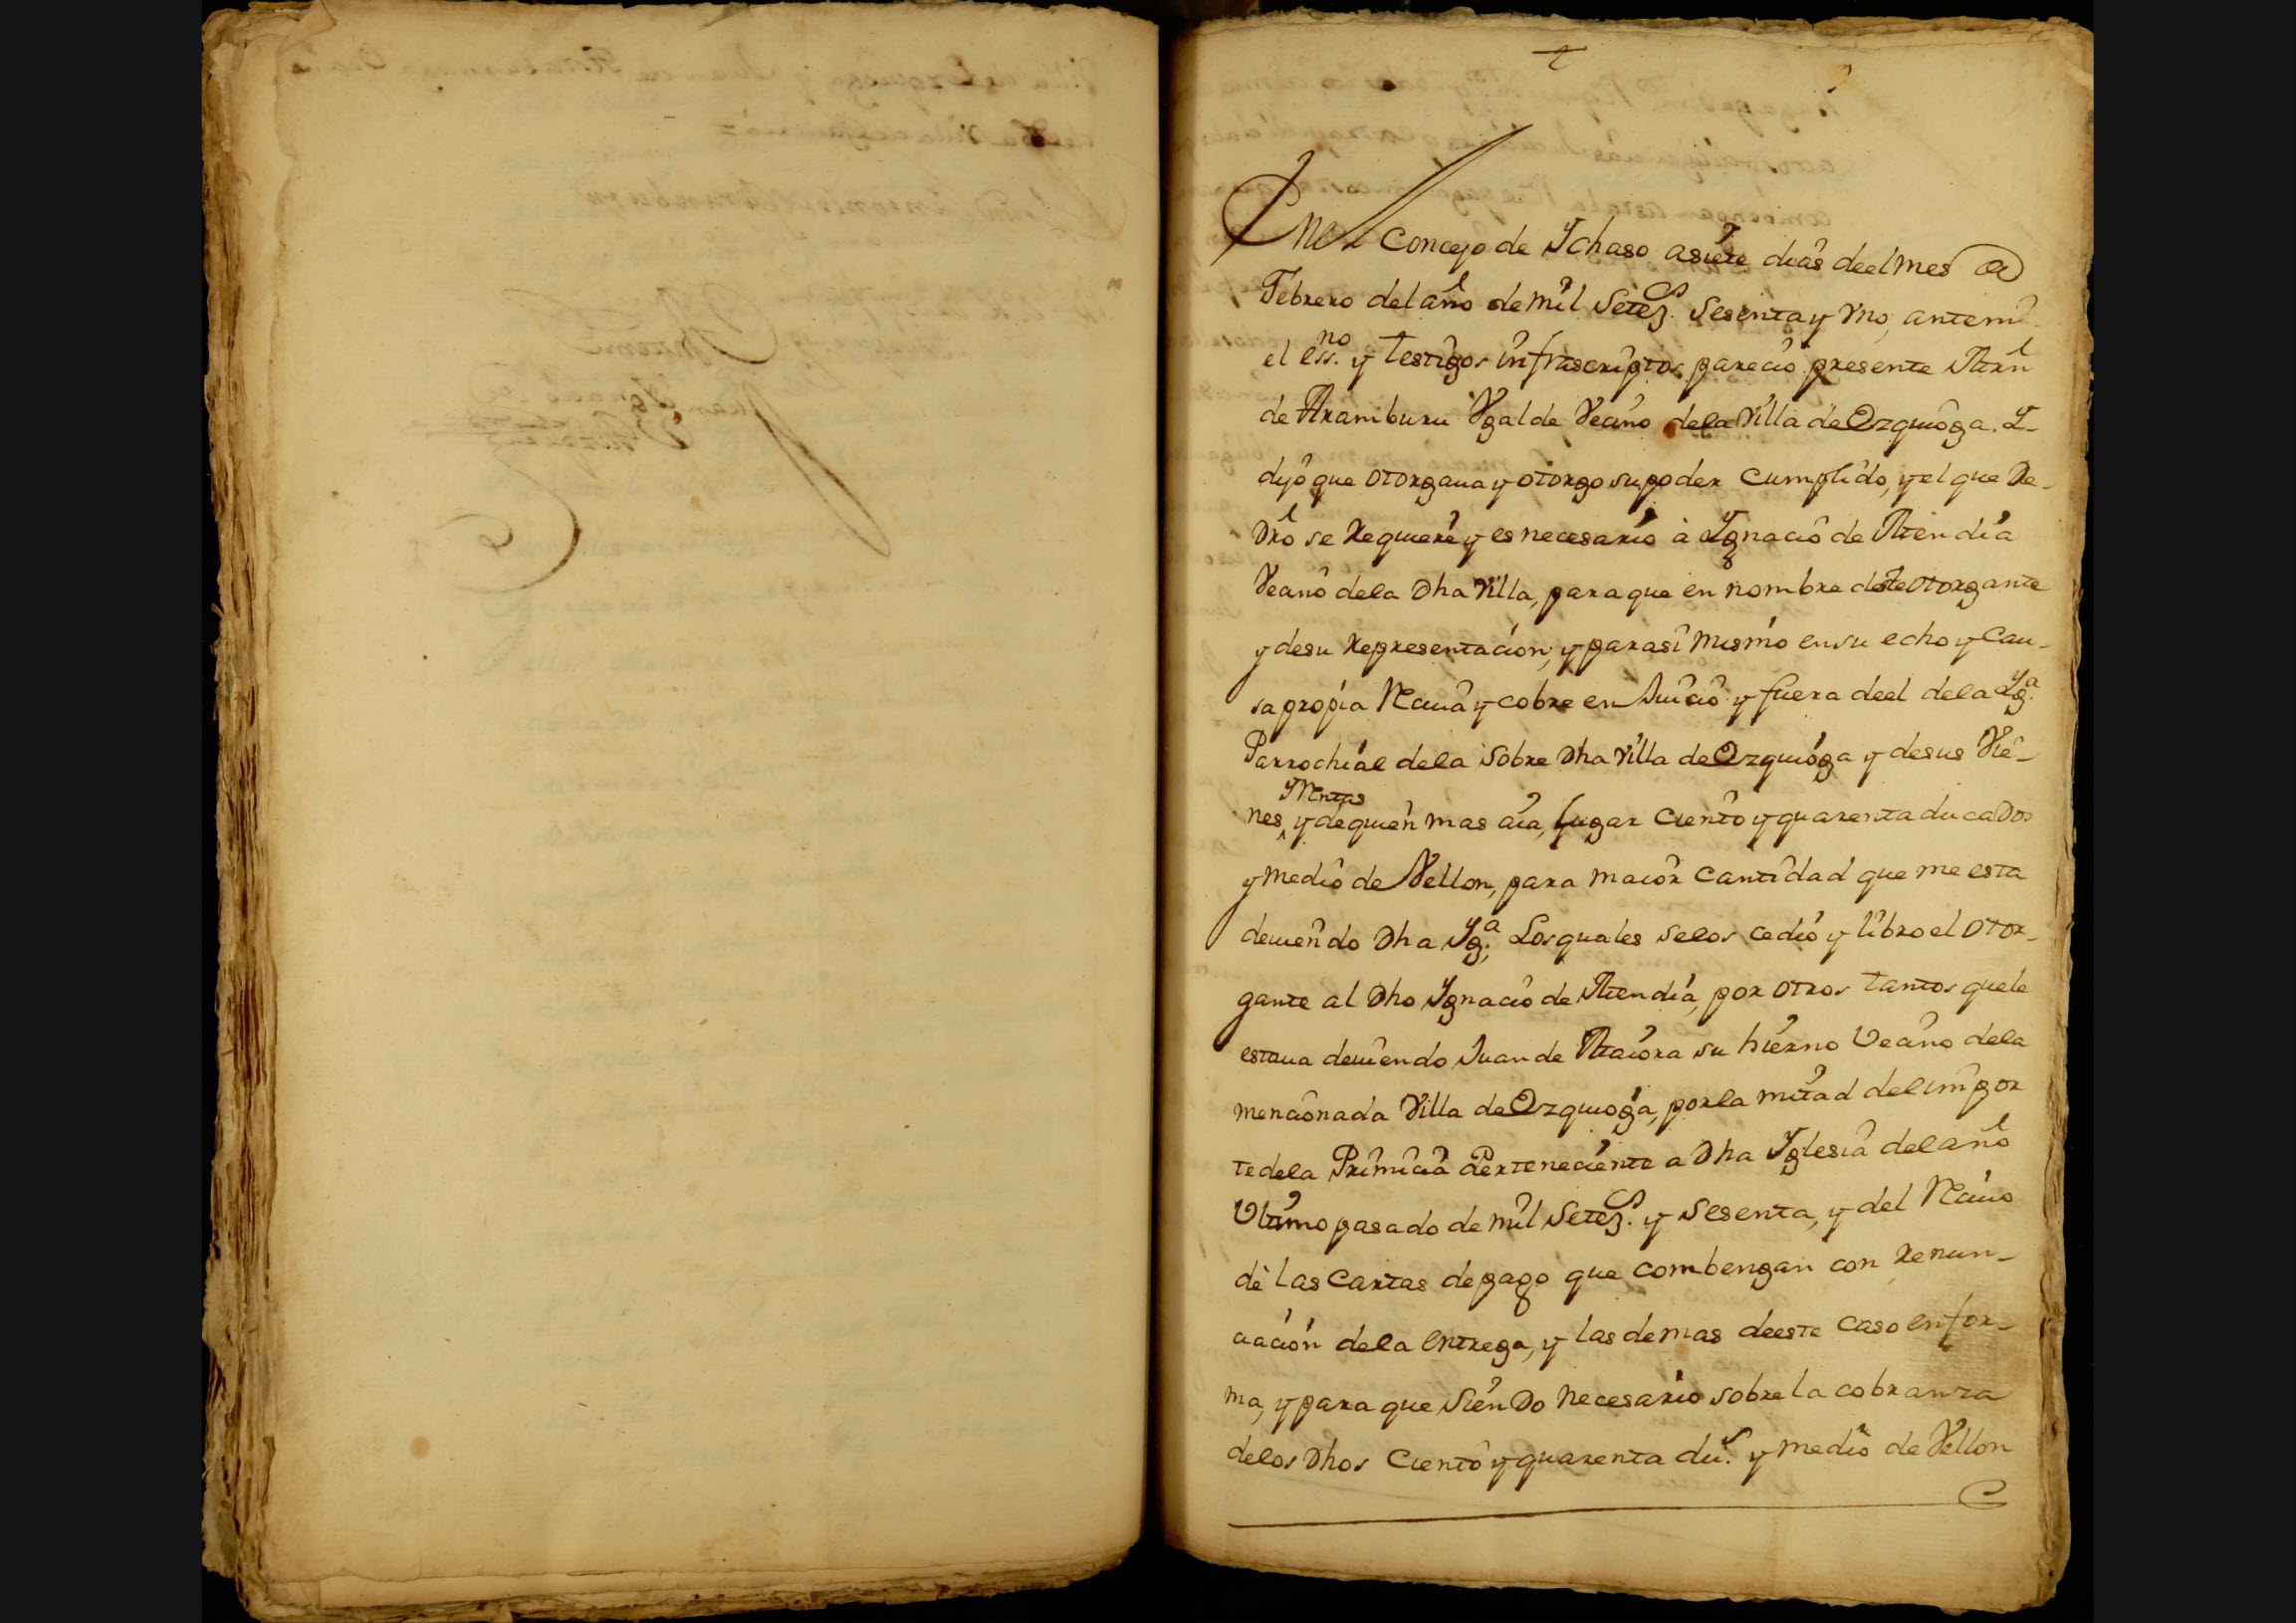 En el Concejo de Ychaso a siete dias de el mes de
Febrero del año de mil Setez.s Sesenta y Vno, antemi
el ess.no y testigos infrascriptos parecio presente Mrn
de Aramburu Vgalde Vecino dela Villa de Ezquioga. Y
dijo que otorgaua y otorgo su poder Cumplido, y el que De
Dro se Requiere y es necesario à Ygnacio de Mendia
Vecino dela Dha Villa, para que en nombre deste otorgante
y desu Representacion, y parasi mismo en su echo y Cau-
sa propia Reciua y cobre en Juicio y fuera deel dela Yg.a
Parrochial dela Sobre Dha Villa de Ezquioga y desus Vie-
nes, y Rentas y de quien mas aia lugar Ciento y quarenta ducados
y medio de Vellon, para maior Cantidad que me esta
deuiendo Dha Yg.a, Los quales selos cedio y libro el otor-
gante al Dho Ygnacio de Mendia, por otros tantos quele
estaua deuiendo Juan de Maiora su hierno Vecino dela
mencionada Villa de Ezquioga, por la mitad del impor
te dela Primicia Perteneciente a Dha Yglesia del año
Vltimo pasado de mil Setez.s y Sesenta, y del Reciuo
dè las Cartas de pago que combengan con Renun-
ciacion dela entrega, y las demas deeste Caso en for-
ma, y para que Siendo necesario sobre la cobranza
delos Dhos Ciento y quarenta du.s y medio de Vellon